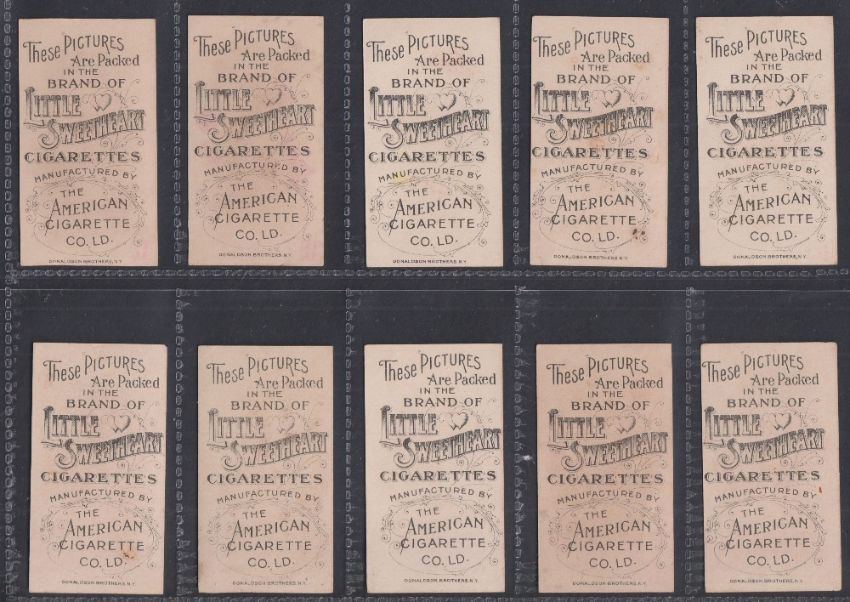 These PICTURES
Are Packed
IN THE
BRAND OF
LITTLE
SWEETHEART
CIGARETTES
MANUFACTURED BY
THE
AMERICAN
CIGARETTE
CO. LD.
DONALDSON BROTHERS, N.Y.
These PICTURES
Are Packed
IN THE
BRAND OF
LITTLE
SWEETHEART
CIGARETTES
MANUFACTURED BY
THE
AMERICAN
CIGARETTE
CO. LD.
DONALDSON BROTHERS, N.Y.
These PICTURES
Are Packed
IN THE
BRAND OF
LITTLE
SWEETHEART
CIGARETTES
MANUFACTURED BY
THE
AMERICAN
CIGARETTE
CO. LD.
DONALDSON BROTHERS, N.Y.
These PICTURES
Are Packed
IN THE
BRAND OF
LITTLE
SWEETHEART
CIGARETTES
MANUFACTURED BY
THE
AMERICAN
CIGARETTE
CO. LD.
DONALDSON BROTHERS, N.Y.
These PICTURES
Are Packed
IN THE
BRAND OF
LITTLE
SWEETHEART
CIGARETTES
MANUFACTURED BY
THE
AMERICAN
CIGARETTE
CO. LD.
DONALDSON BROTHERS, N.Y.
These PICTURES
Are Packed
IN THE
BRAND OF
LITTLE
SWEETHEART
CIGARETTES
MANUFACTURED BY
THE
AMERICAN
CIGARETTE
CO. LD.
DONALDSON BROTHERS, N.Y.
These PICTURES
Are Packed
IN THE
BRAND OF
LITTLE
SWEETHEART
CIGARETTES
MANUFACTURED BY
THE
AMERICAN
CIGARETTE
CO. LD.
DONALDSON BROTHERS, N.Y.
These PICTURES
Are Packed
IN THE
BRAND OF
LITTLE
SWEETHEART
CIGARETTES
MANUFACTURED BY
THE
AMERICAN
CIGARETTE
CO. LD.
DONALDSON BROTHERS, N.Y.
These PICTURES
Are Packed
IN THE
BRAND OF
LITTLE
SWEETHEART
CIGARETTES
MANUFACTURED BY
THE
AMERICAN
CIGARETTE
CO. LD.
DONALDSON BROTHERS, N.Y.
These PICTURES
Are Packed
IN THE
BRAND OF
LITTLE
SWEETHEART
CIGARETTES
MANUFACTURED BY
THE
AMERICAN
CIGARETTE
CO. LD.
DONALDSON BROTHERS, N.Y.